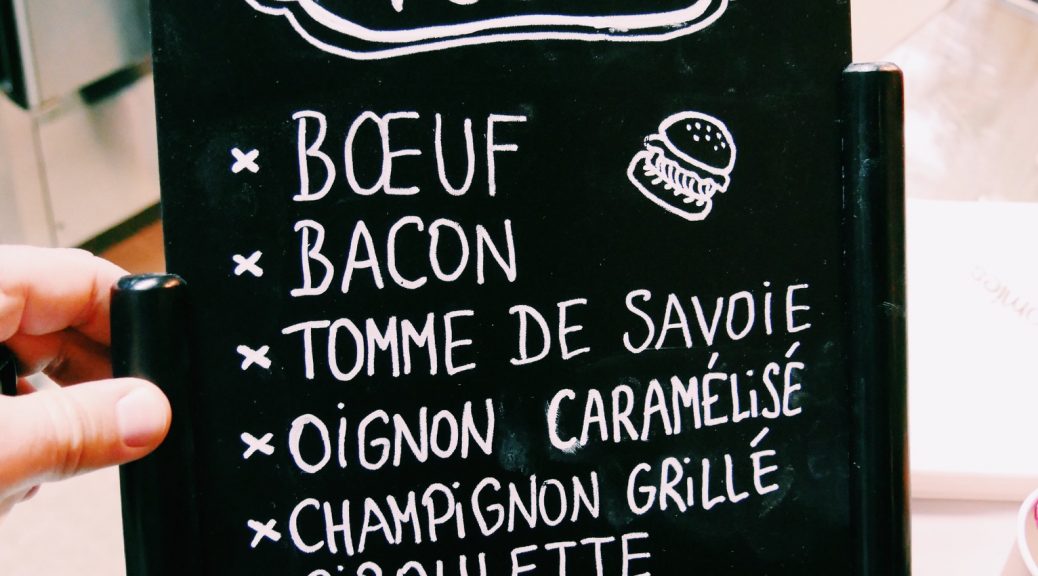 × BŒUF
× BACON
× TOMME DE SAVOIE
× OIGNON CARAMÉLISÉ
× CHAMPIGNON GRILLÉ
CIBOULETTE